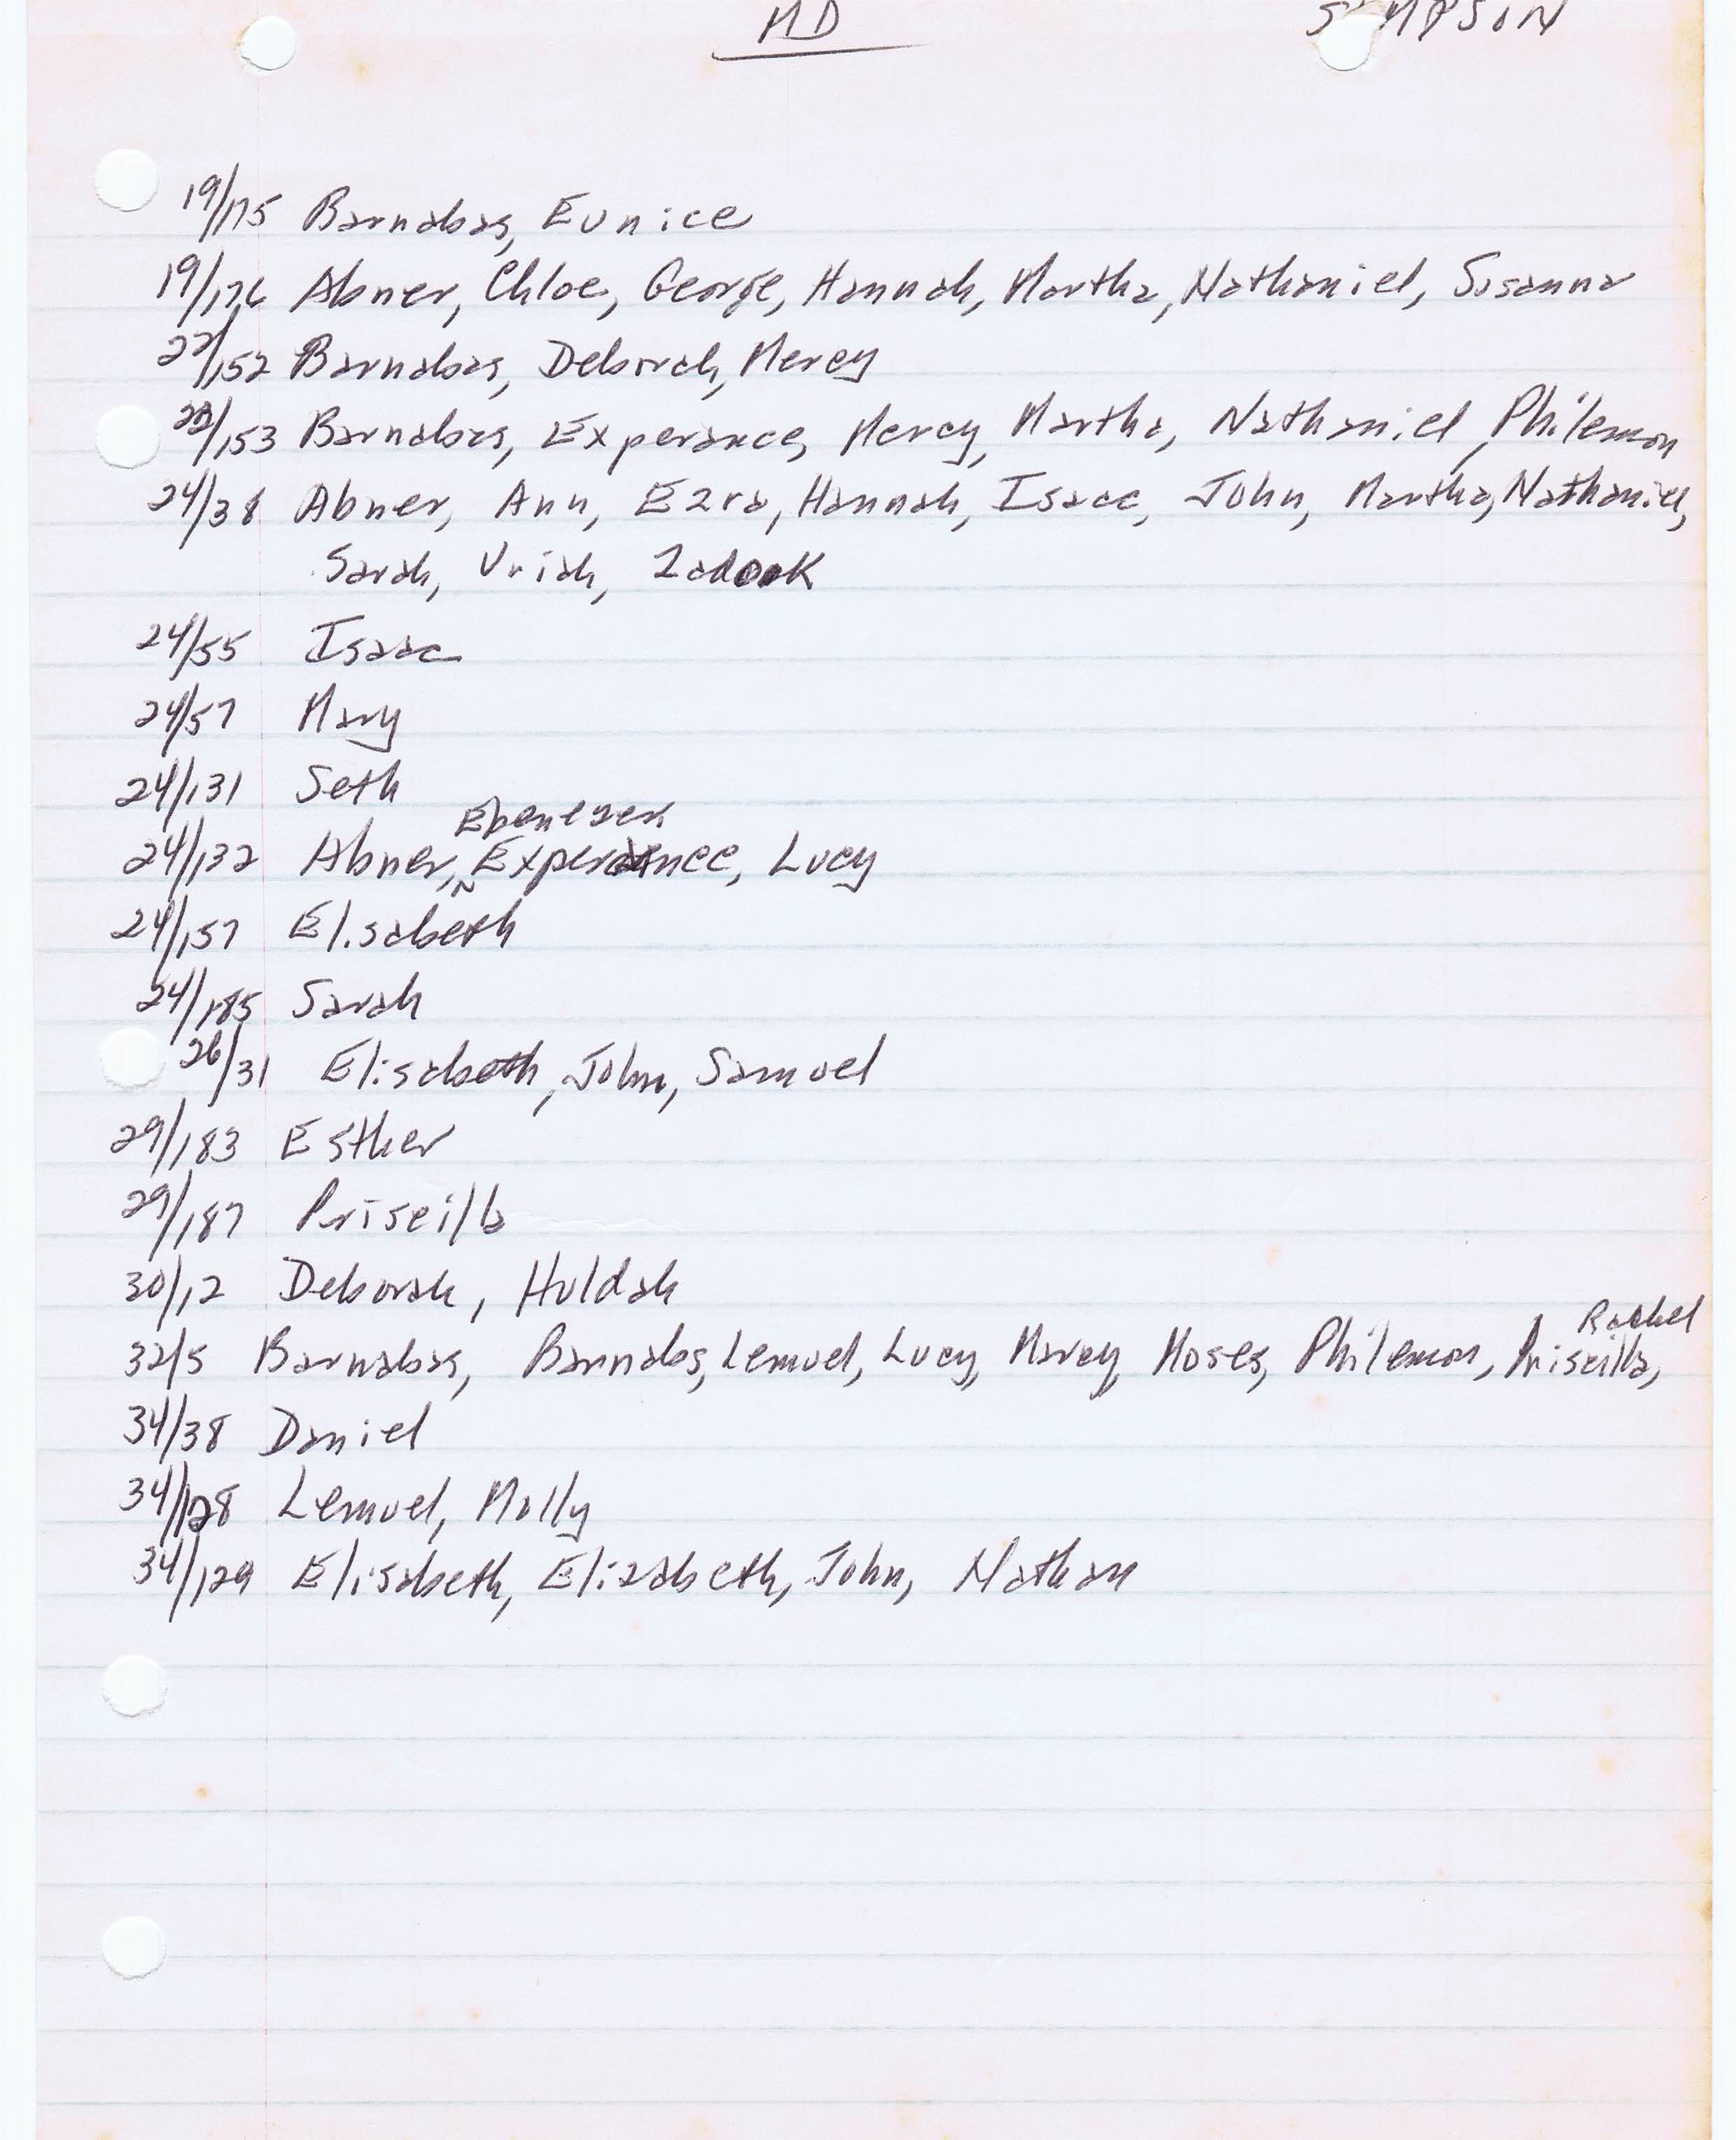 MD SIMPSON
19/175 Barnabas, Eunice
19/176 Abner, Chloe, George, Hannah, Martha, Nathaniel, Susanna
22/152 Barnabas, Deborah, Mercy
22/153 Barnabas, Experance, Mercy, Martha, Nathaniel, Philemon
24/38 Abner, Ann, Ezra, Hannah, Isaac, John, Martha, Nathaniel,
Sarah, Uriah, Zadook
24/55 Isaac
24/57 Mary
24/131 Seth
Ebenezer
24/132 Abner, Experance, Lucy
24/157 Elisabeth
24/185 Sarah
26/31 Elisabeth, John, Samuel
29/183 Esther
29/187 Priscilla
30/12 Deborah, Huldah
Rachel
32/5 Barnabas, Barnabas, Lemuel, Lucy, Marcy, Moses, Philemon, Priscilla,
34/38 Daniel
34/128 Lemuel, Molly
34/129 Elisabeth, Elizabeth, John, Nathan